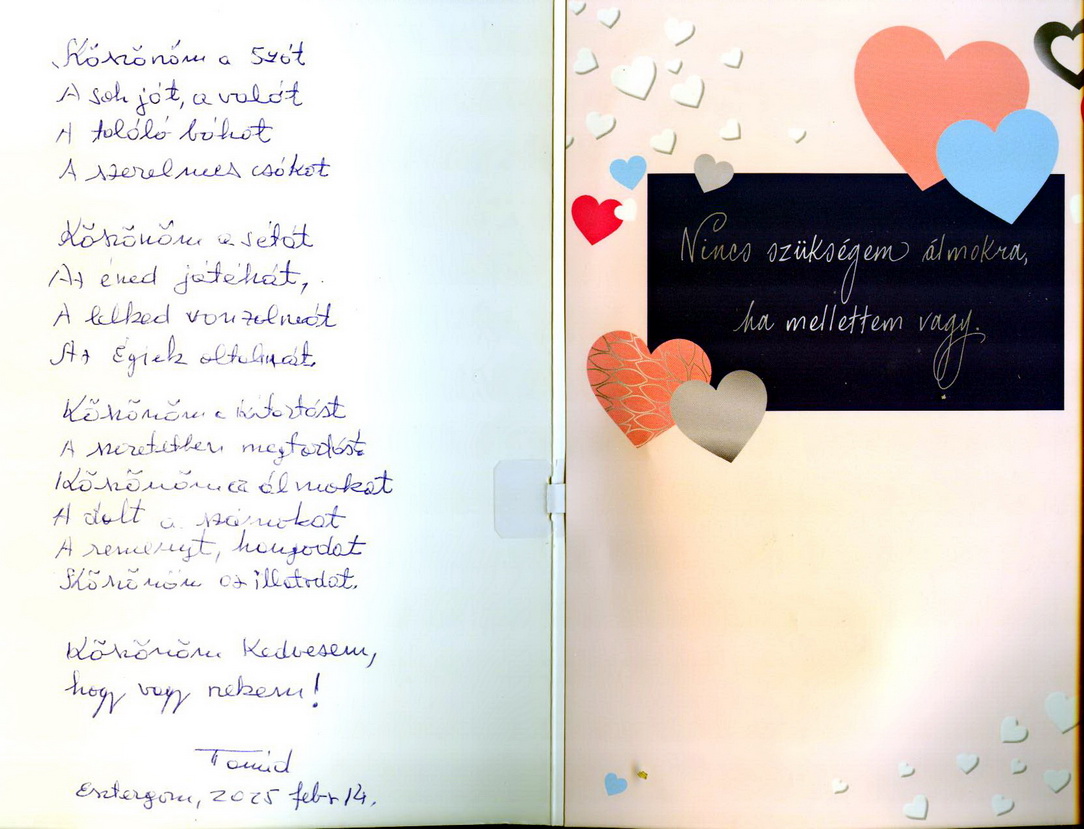 Köszönöm a Szót
A sok jót, a valót
A találó bókot
A szerelmes csókot
Köszönöm a sétát
Az éned játékát,
A lelked vonzalmát
Az Égiek oltalmát.
Köszönöm a kitartást
A szeretetben megtartást
Köszönöm az álmokat
A dalt a számokat
A reményt, hangodat
Köszönöm az illatodat.
Köszönöm Kedvesem,
hogy vagy nekem!
Esztergom, 2025 febr 14.
Nincs szükségem álmokra,
ha mellettem vagy.